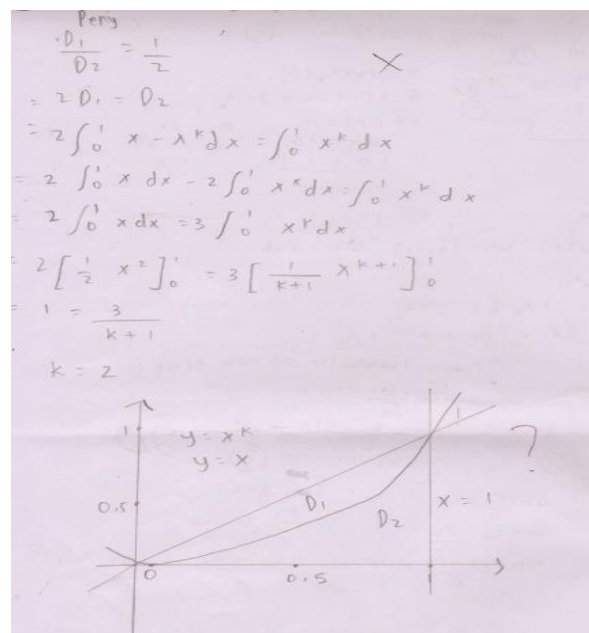 Peny
D₁/D₂ = 1/2
= 2 D₁ = D₂
= 2 ∫₀¹ x - x^k dx = ∫₀¹ x^k dx
= 2 ∫₀¹ x dx - 2 ∫₀¹ x^k dx = ∫₀¹ x^k dx
= 2 ∫₀¹ x dx = 3 ∫₀¹ x^k dx
= 2 [ 1/2 x² ]₀¹ = 3 [ 1/(k+1) x^(k+1) ]₀¹
= 1 = 3/(k+1)
k = 2
1
y = x^k
y = x
?
0,5
D₁
D₂
x = 1
0
0,5
1